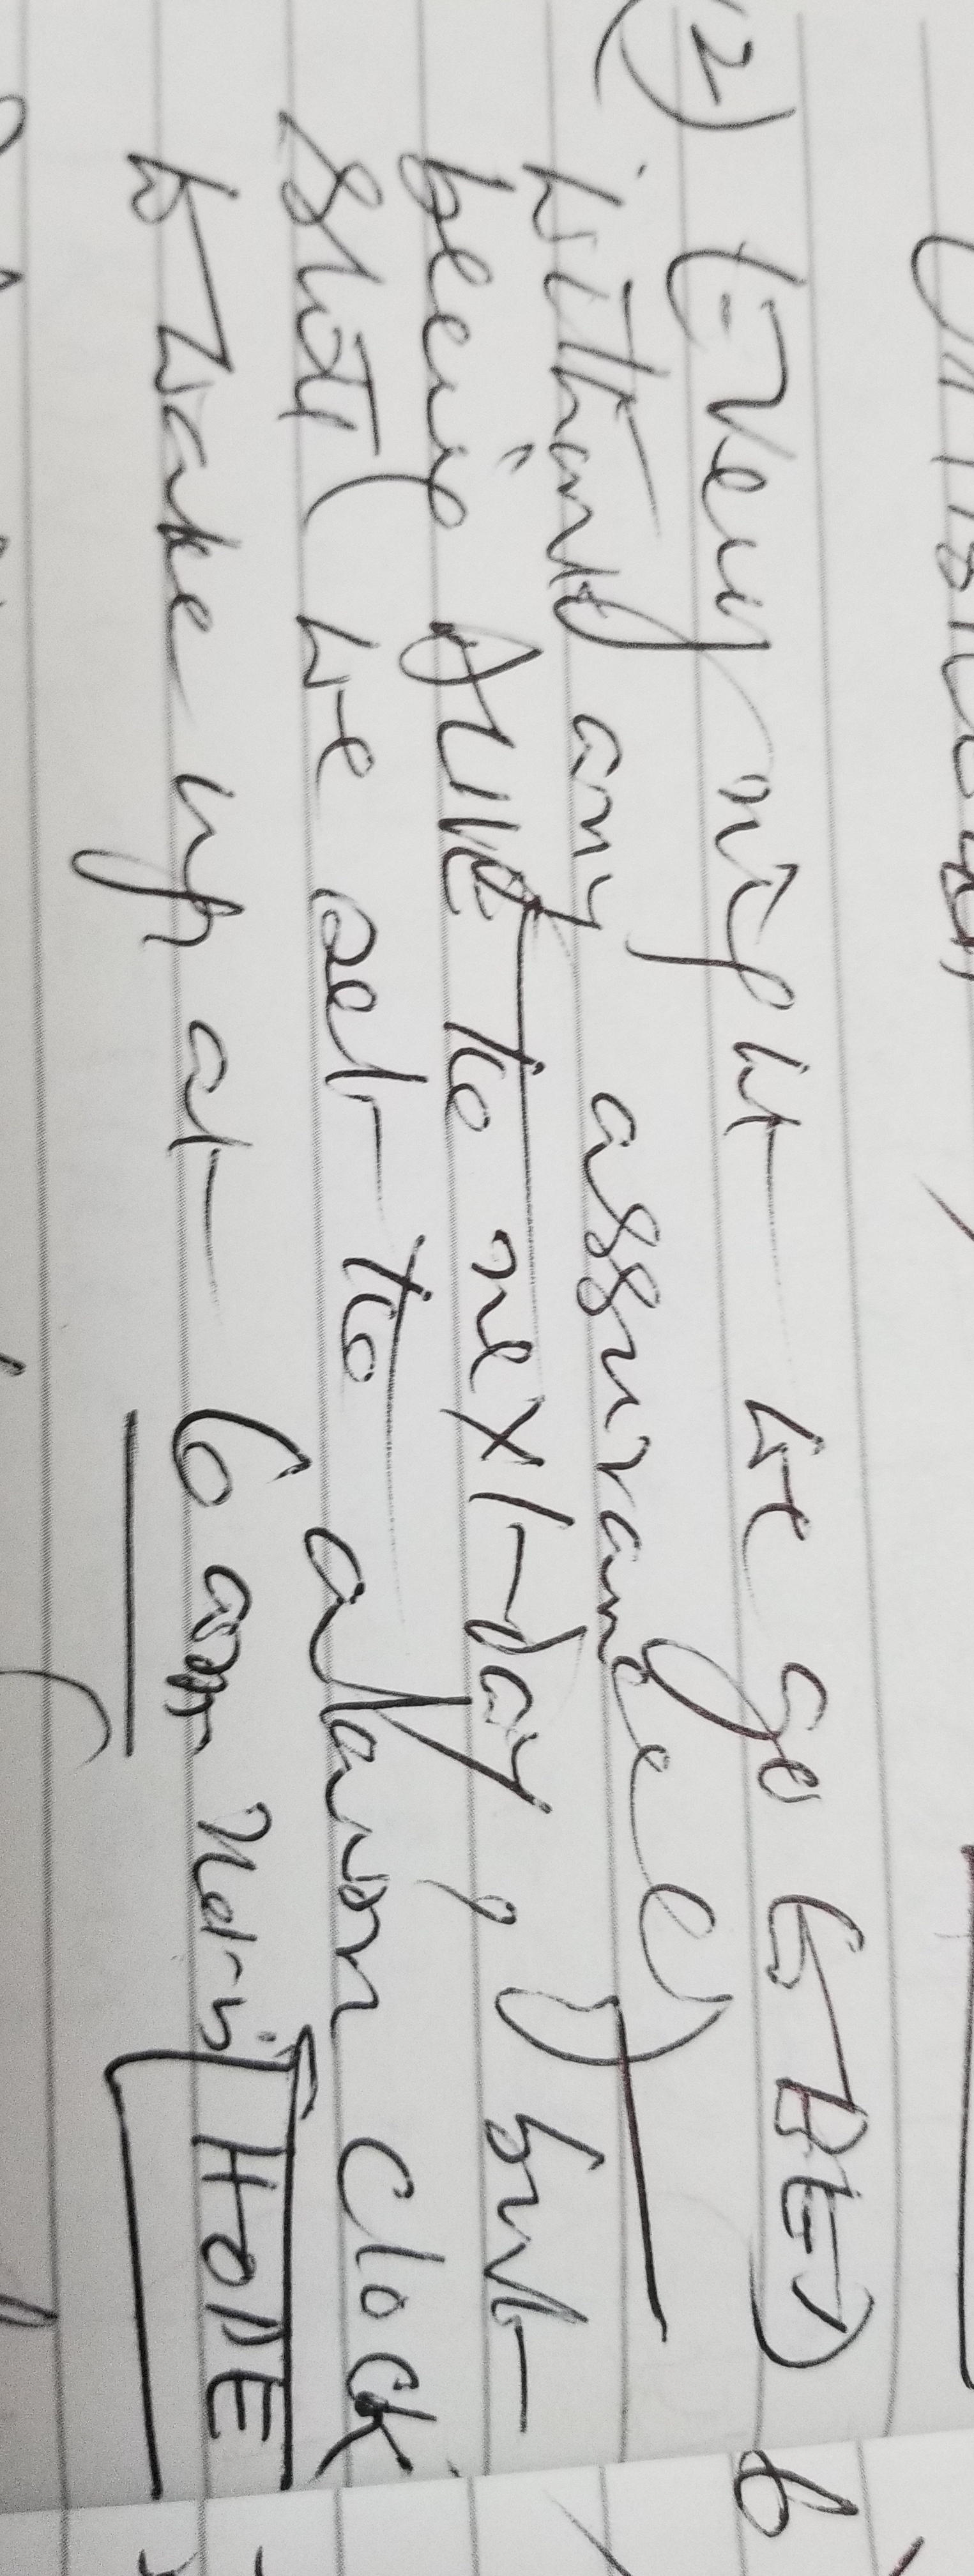 (2) Every night we go to BED
without any assurance)
being ALIVE to next day, but
still (we set to alarm clock
to wake up at 6 am
HOPE